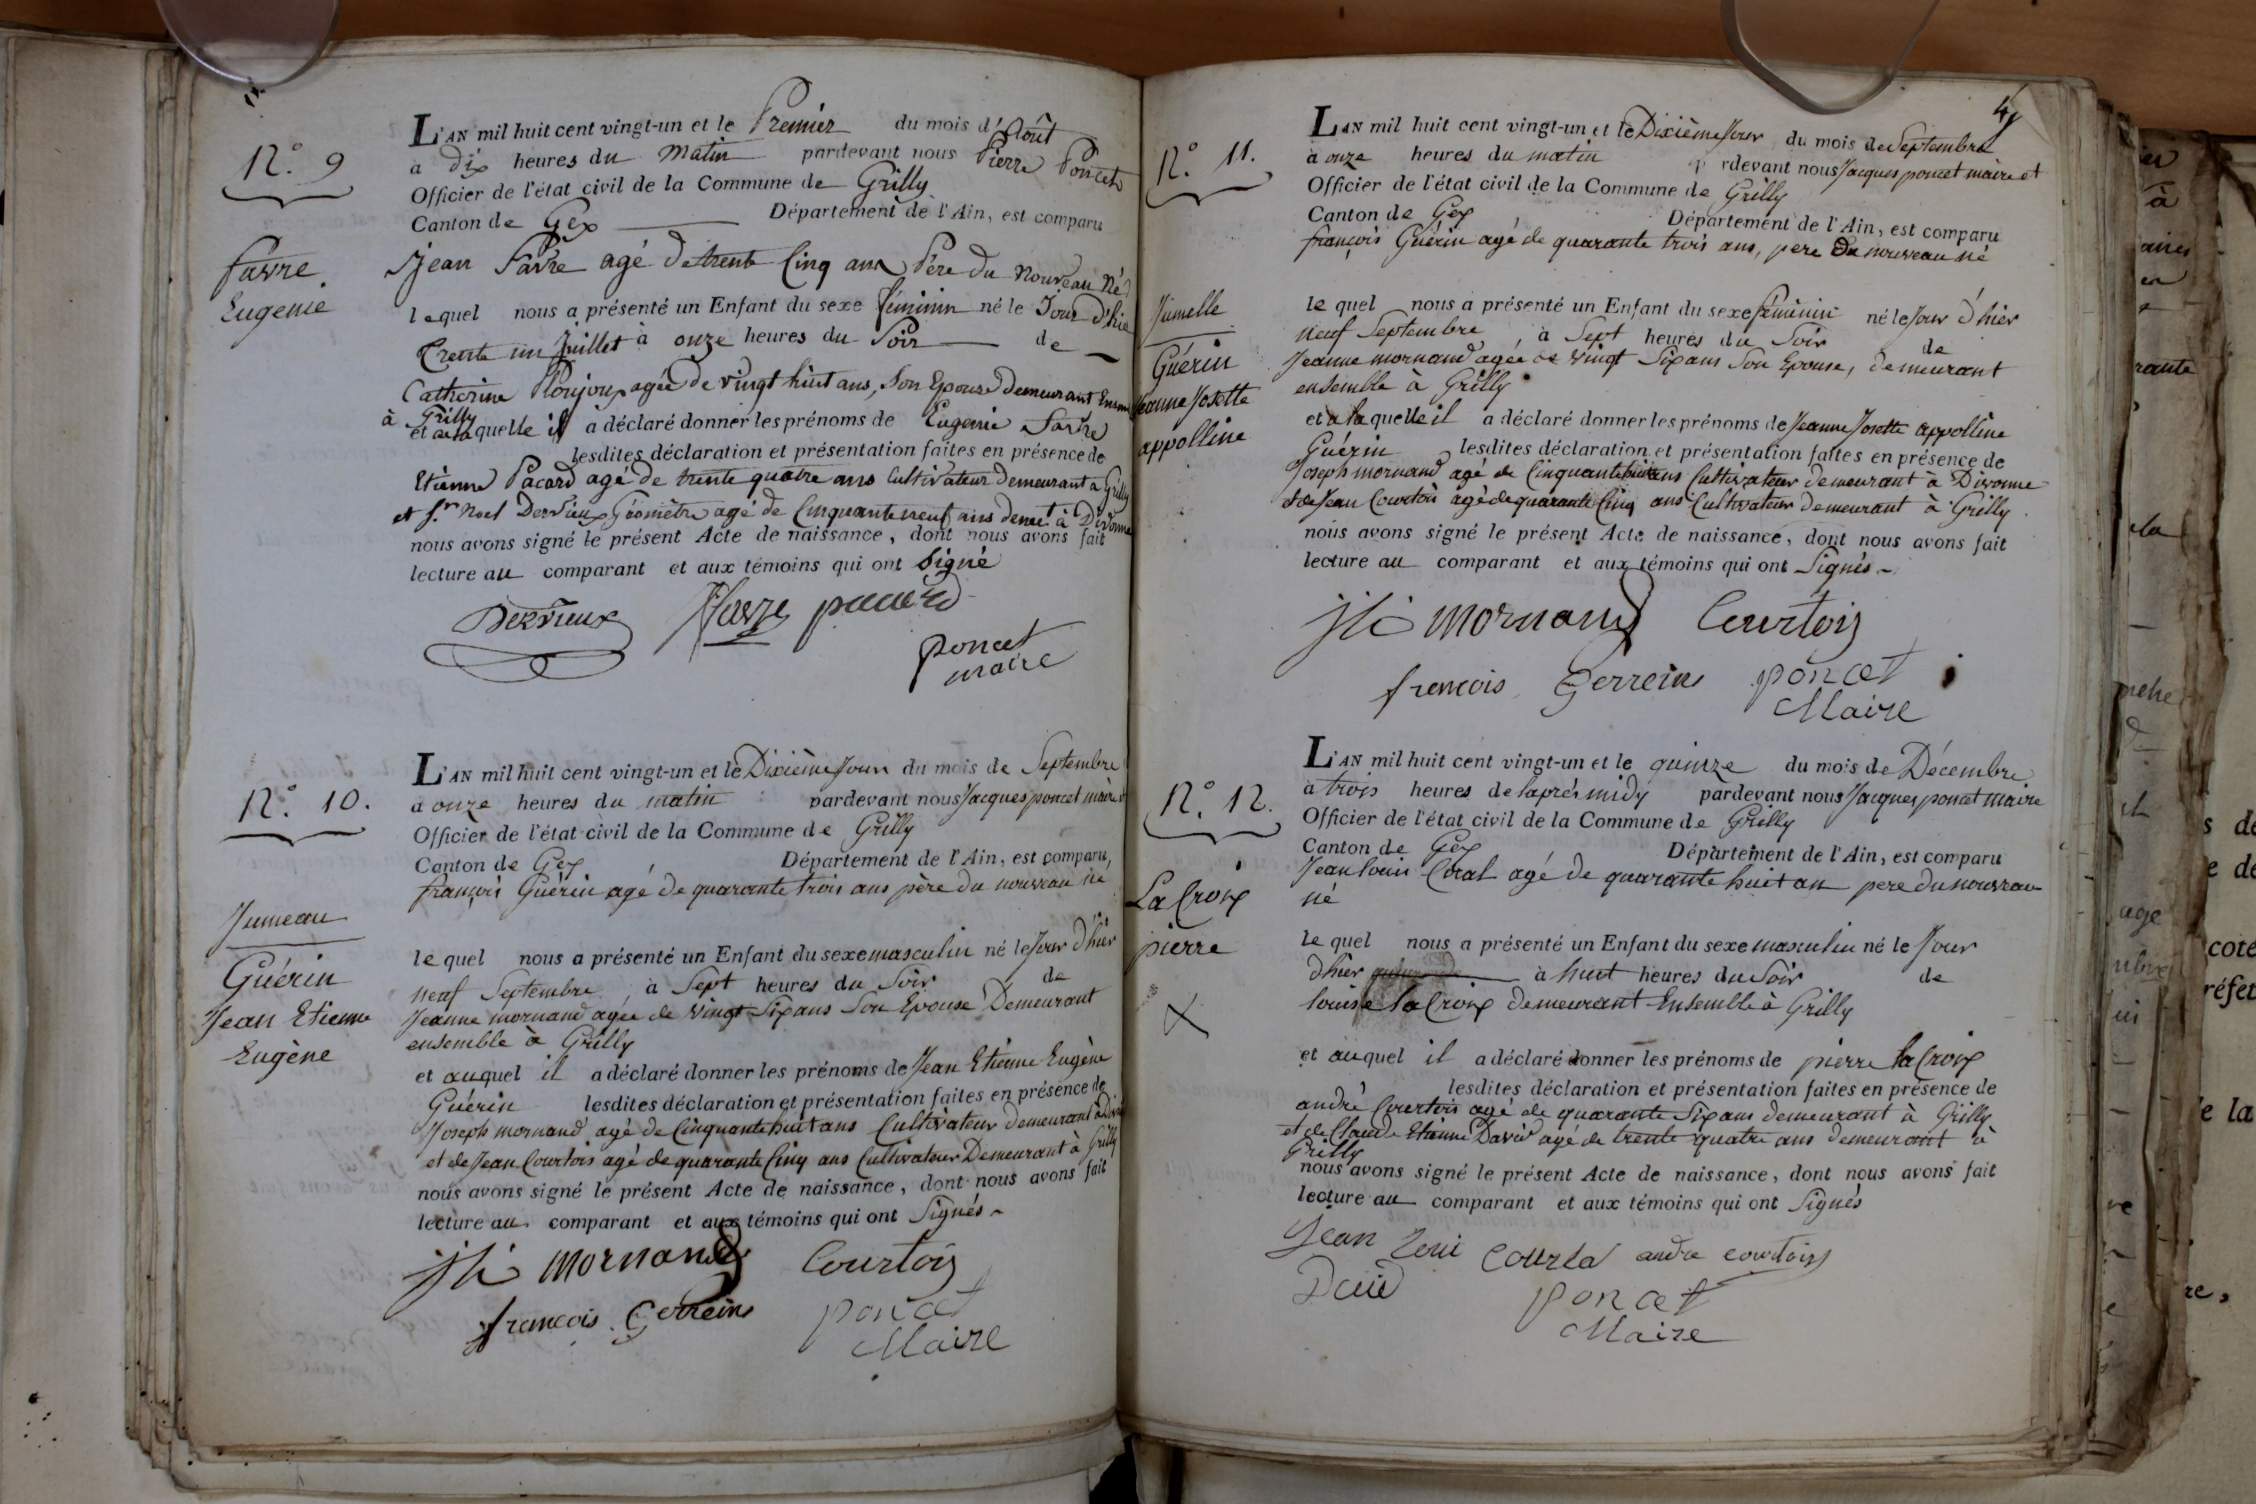 N.° 9
favre
Eugenie
L'AN mil huit cent vingt-un et le Premier du mois d'Août
a dix heures du matin pardevant nous Pierre Poncet
Officier de l'état civil de la Commune de Grilly
Canton de Gex Département de l'Ain, est comparu
Jean Favre agé de trente Cinq ans Père du Nouveau Né
lequel nous a présenté un Enfant du sexe féminin né le Jour d'hie
trente un Juillet à onze heures du Soir de
Catherine agée de vingt huit ans, Son Epouse demeurant
à Grilly
et a laquelle il a déclaré donner les prénoms de Eugenie Favre
lesdites déclaration et présentation faites en présence de
Etienne Pacard agé de trente quatre ans Cultivateur demeurant a Grilly
et S.r Noel Dervieux Géomètre agé de Cinquante neuf ans demt. à Divonne
nous avons signé le présent Acte de naissance, dont nous avons fait
lecture au comparant et aux témoins qui ont Signé
Dervieux Favre pacard
poncet
maire
N.° 10.
Jumeau
Guérin
Jean Etienne
Eugène
L'AN mil huit cent vingt-un et le Dixième Jour du mois de Septembre
à onze heures du matin pardevant nous Jacques poncet maire et
Officier de l'état civil de la Commune de Grilly
Canton de Gex Département de l'Ain, est comparu,
françois Guérin agé de quarante trois ans père du nouveau né
le quel nous a présenté un Enfant du sexe masculin né le Jour d'hier
neuf Septembre à Sept heures du Soir de
Jeanne mornand agée de Vingt Six ans Son Epouse Demeurant
ensemble à Grilly
et auquel il a déclaré donner les prénoms de Jean Etienne Eugène
Guérin lesdites déclaration et présentation faites en présence de
Joseph mornand agé de Cinquante huit ans Cultivateur demeurant à
et de Jean Courtois agé de quarante Cinq ans Cultivateur Demeurant à Grilly
nous avons signé le présent Acte de naissance, dont nous avons fait
lecture au comparant et aux témoins qui ont Signés
mornand Courtois
francois Gerrein
poncet
Maire
N.° 11.
Jumelle
Guérin
Jeanne Josette
appolline
L'AN mil huit cent vingt-un et le Dixième Jour du mois de Septembre
à onze heures du matin rdevant nous Jacques poncet maire et
Officier de l'état civil de la Commune de Grilly
Canton de Gex Département de l'Ain, est comparu
françois Guérin agé de quarante trois ans, pere du nouveau né
le quel nous a présenté un Enfant du sexe féminin né le Jour d'hier
neuf Septembre à Sept heures du Soir de
Jeanne mornand agée de Vingt Six ans Son Epouse, demeurant
ensemble à Grilly
et a la quelle il a déclaré donner les prénoms de Jeanne Josette appolline
Guérin lesdites déclaration et présentation faites en présence de
Joseph mornand agé de Cinquante huit ans Cultivateur demeurant à Divonne
et de Jean Courtois agé de quarante Cinq ans Cultivateur Demeurant à Grilly
nous avons signé le présent Acte de naissance, dont nous avons fait
lecture au comparant et aux témoins qui ont Signés
mornand Courtois
francois Gerrein poncet
Maire
N.° 12.
La Croix
pierre
L'AN mil huit cent vingt-un et le quinze du mois de Décembre
à trois heures de laprés midy pardevant nous Jacques poncet maire
Officier de l'état civil de la Commune de Grilly
Canton de Gex Département de l'Ain, est comparu
Jean louis agé de quarante huit an pere du nouveau
né
le quel nous a présenté un Enfant du sexe masculin né le Jour
dhier à huit heures du Soir de
louise la Croix demeurant Ensemble à Grilly
et auquel il a déclaré donner les prénoms de pierre la Croix
lesdites déclaration et présentation faites en présence de
andré Courtois agé de quarante Six ans demeurant à Grilly
et de Claude Etienne David agé de trente quatre ans demeurant à
Grilly
nous avons signé le présent Acte de naissance, dont nous avons fait
lecture au comparant et aux témoins qui ont Signés
Jean Loui andre courtois
poncet
Maire